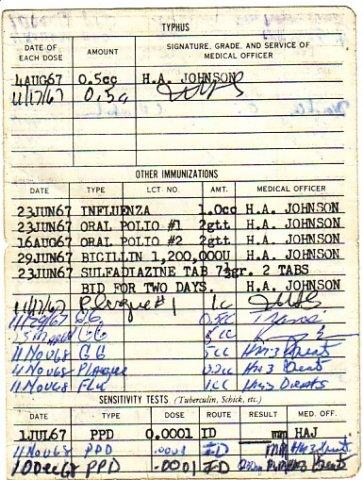 TYPHUS
DATE OF EACH DOSE AMOUNT SIGNATURE, GRADE, AND SERVICE OF MEDICAL OFFICER
1AUG67 0.5cc H.A. JOHNSON
11/17/67 0.5c
OTHER IMMUNIZATIONS
DATE TYPE LCT. NO. AMT. MEDICAL OFFICER
23JUN67 INFLUENZA 1.0cc H.A. JOHNSON
23JUN67 ORAL POLIO #1 2gtt H.A. JOHNSON
16AUG67 ORAL POLIO #2 2gtt H.A. JOHNSON
29JUN67 BICILLIN 1,200,000U H.A. JOHNSON
23JUN67 SULFADIAZINE TAB 7½gr. 2 TABS
BID FOR TWO DAYS. H.A. JOHNSON
11/17/67 Plague #1 1c
11/29/67 GG
GG 5cc
11 Nov 68 GG 5cc HM3
11 Nov 68 Plague 0.2cc HM3
11 Nov 68 Flu 1cc HM3
SENSITIVITY TESTS (Tuberculin, Schick, etc.)
DATE TYPE DOSE ROUTE RESULT MED. OFF.
1JUL67 PPD 0.0001 ID mm HAJ
11 Nov 68 PPD .0001 ID HM3
10 Dec 68 PPD .0001 ID HM3